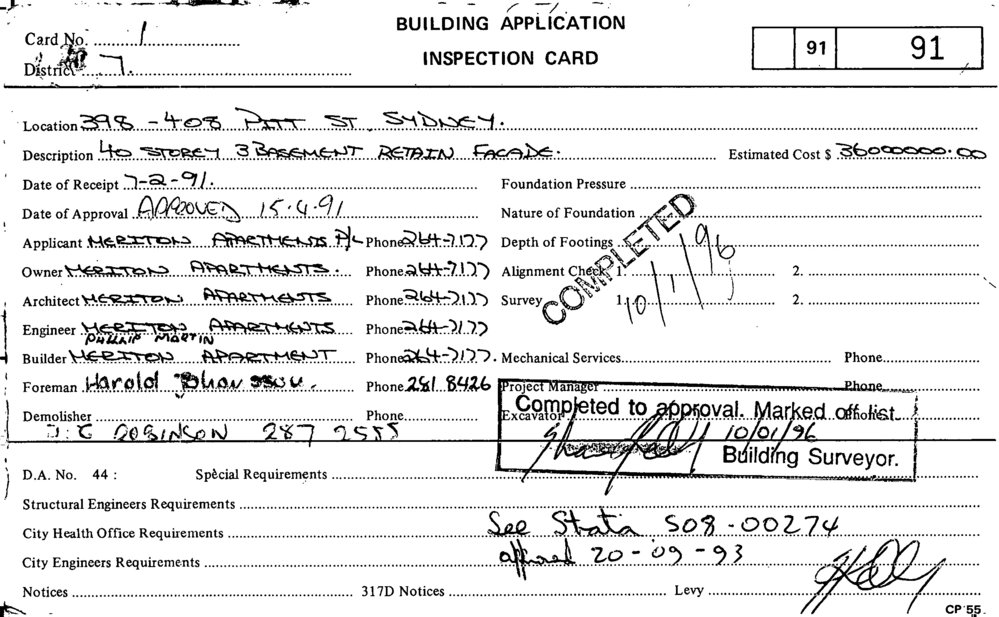 BUILDING APPLICATION
INSPECTION CARD
Card No. 1
District 7.
91 91
Location 398 - 408 PITT ST SYDNEY.
Description 40 STOREY 3 BASEMENT RETAIN FACADE. Estimated Cost $ 36000000.00
Date of Receipt 7-2-91. Foundation Pressure
Date of Approval APPROVED 15.4.91 Nature of Foundation
Applicant MERITON APARTMENTS P/L Phone 264-7177 Depth of Footings
Owner MERITON APARTMENTS. Phone 264-7177 Alignment Check 1. 2.
Architect MERITON APARTMENTS Phone 264-7177 Survey 1. 2.
COMPLETED
10/1/96
Engineer MERITON APARTMENTS Phone 264-7177
PHILLIP MARTIN
Builder MERITON APARTMENT Phone 264-7177. Mechanical Services Phone
Foreman Harold Phone 281 8426 Project Manager Phone
Demolisher Phone Excavator
J. C ROBINSON 287 2555
Completed to approval. Marked off list.
10/01/96
Building Surveyor.
D.A. No. 44 : Special Requirements
Structural Engineers Requirements
City Health Office Requirements See Strata S08-00274
City Engineers Requirements 20-09-93
Notices 317D Notices Levy
CP 55